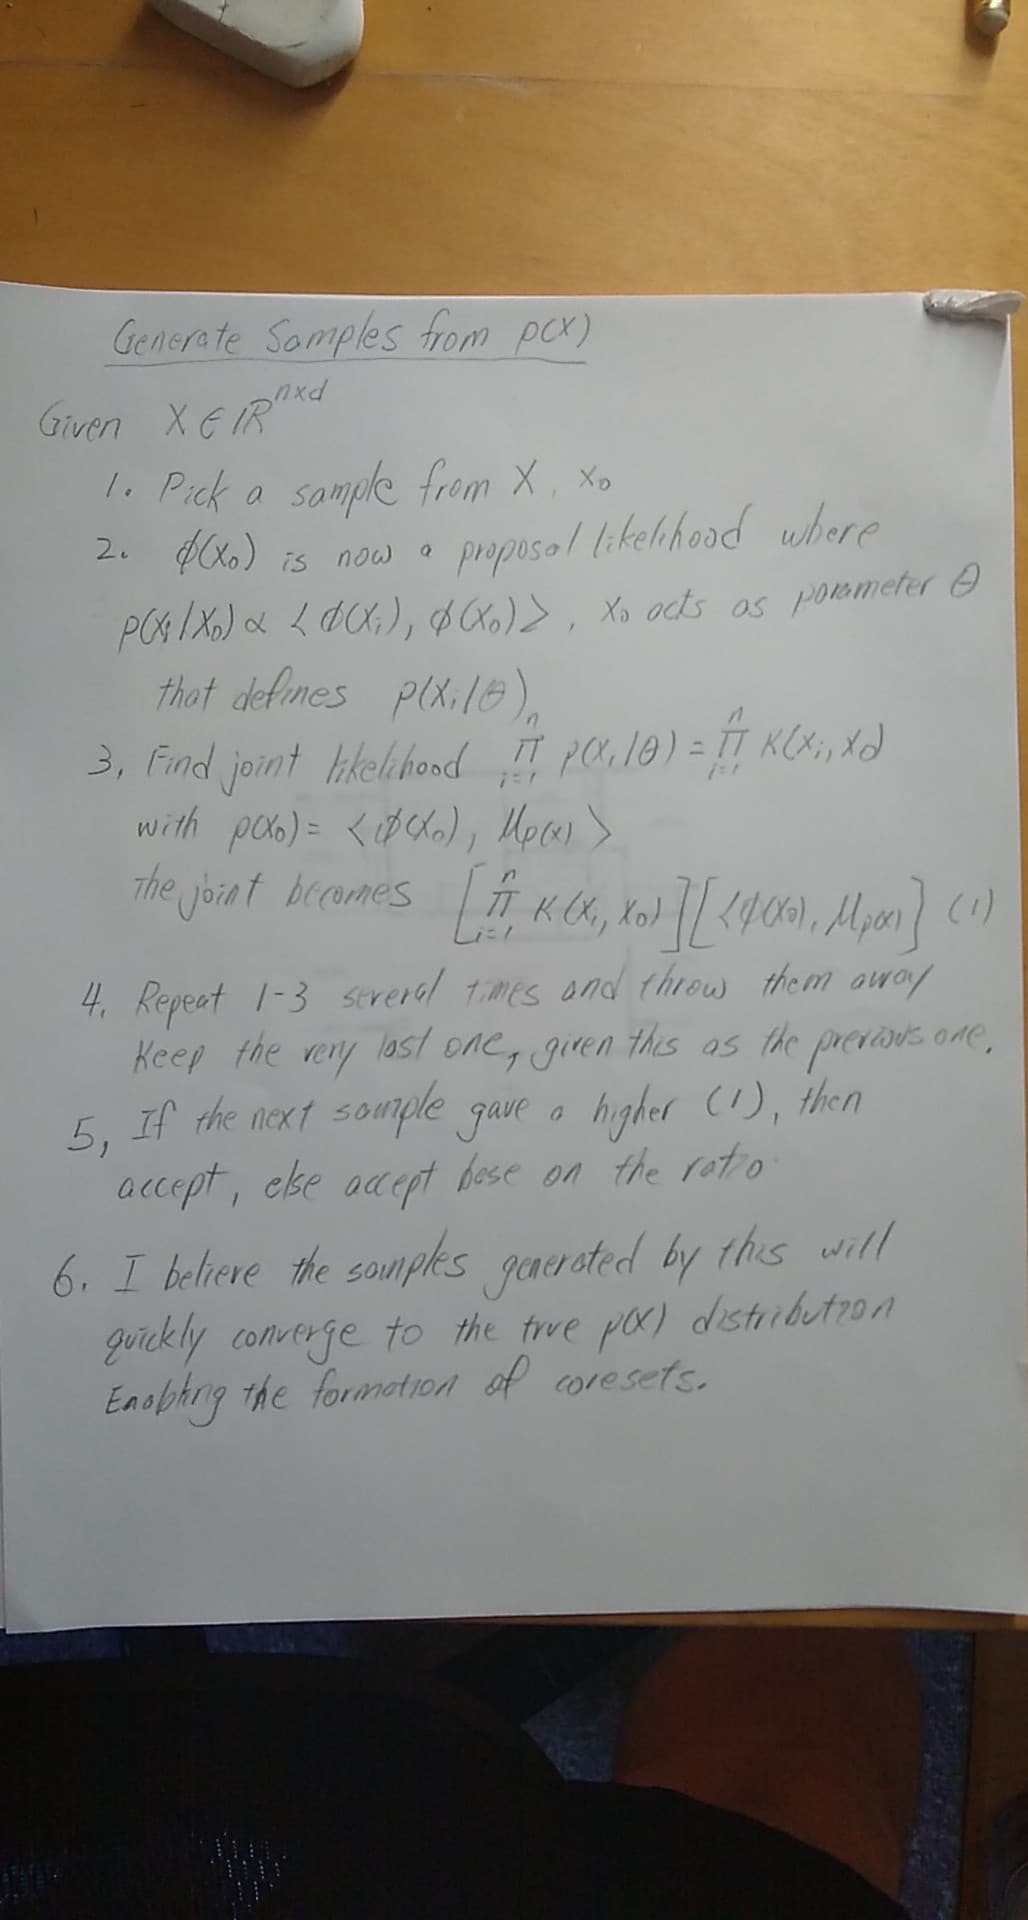 Generate Samples from p(x)
Given X ∈ ℝ^{n×d}
1. Pick a sample from X, x₀
2. ϕ(x₀) is now a proposal likelihood where
p(xᵢ|x₀) ∝ <ϕ(xᵢ), ϕ(x₀)>, x₀ acts as parameter θ
that defines p(xᵢ|θ)
3, Find joint likelihood ∏_{i=1}^{n} p(xᵢ|θ) = ∏_{i=1}^{n} K(xᵢ, x₀)
with p(x₀) = <ϕ(x₀), μ_{p(x)}>
The joint becomes [∏_{i=1}^{n} K(xᵢ, x₀)][<ϕ(x₀), μ_{p(x)}] (1)
4, Repeat 1-3 several times and throw them away
Keep the very last one, given this as the previous one.
5, If the next sample gave a higher (1), then
accept, else accept base on the ratio
6. I believe the samples generated by this will
quickly converge to the true p(x) distribution
Enabling the formation of coresets.